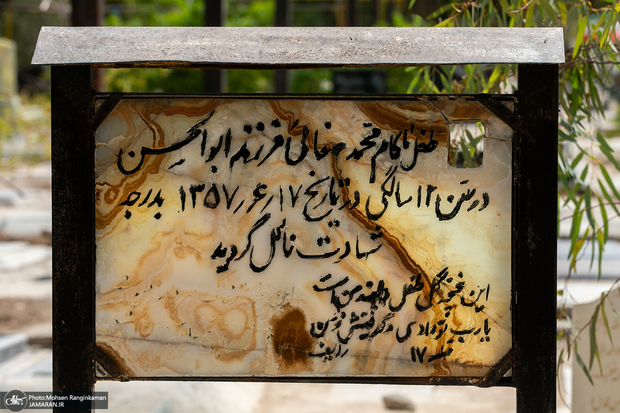 طفل ناکام محمد صفائی فرزند ابوالحسن
در سن ۱۲ سالگی در تاریخ ۱۷/۶/۱۳۵۷ بدرجه
شهادت نائل گردید
این غنچه گل طفل من است
یا رب تو دادی و گرفتیش ز من
ردیف ۱۷
Photo:Mohsen Ranginkaman
JAMARAN.IR